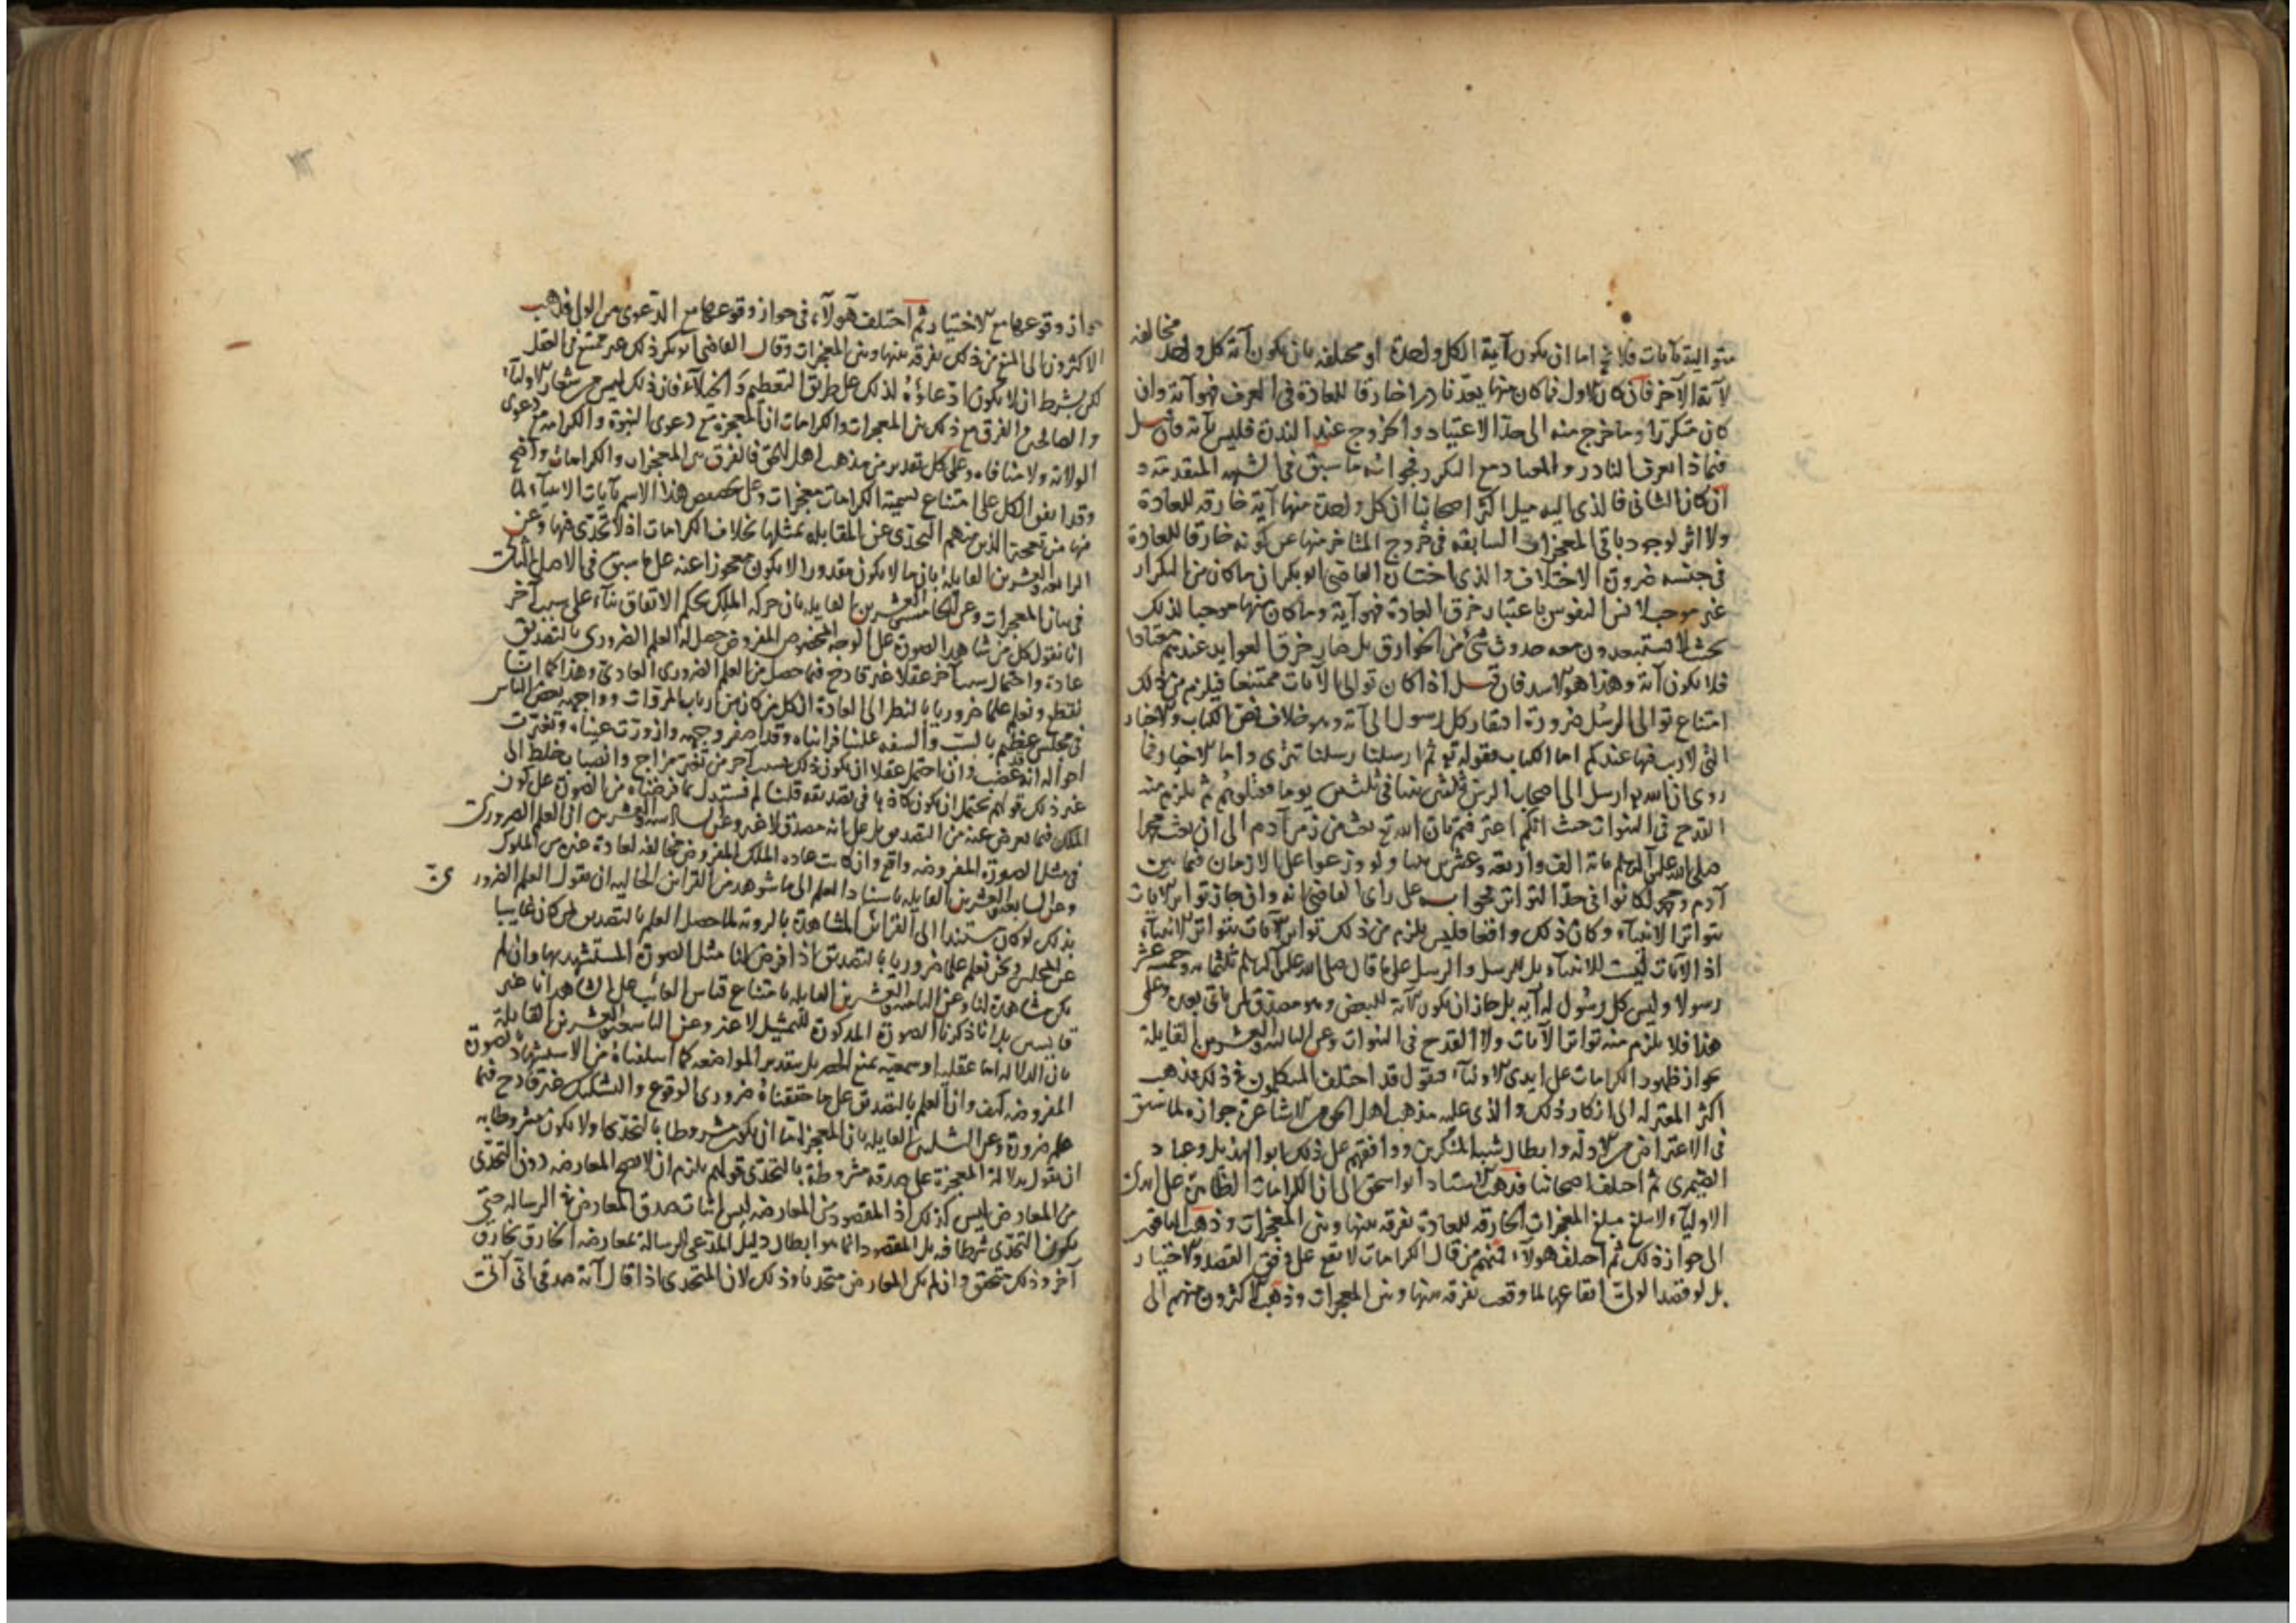 متوالية بآيات فلا يخ اما ان يكون آية الكل واحدة او مختلفه بان يكون آية كل واحد مخالفه
لآية الآخر فان كان الاول فما كان منها يعد نادرا خارقا للعادة فى العرف فهو آية وان
كان متكررا وما خرج منه الى حد الاعتياد والخروج عند الندرة فليس بآية فان قيل
فبماذا يعرف النادر والمعتاد مع التكرر فجوابه ما سبق فى الشبهه المتقدمة و
ان كان الثانى فالذى اليه ميل اكثر اصحابنا ان كل واحدة منها آية خارقه للعادة
ولا اثر لوجود باقى المعجزات السابقه فى خروج المتاخر منها عن كونه خارقا للعادة
فى جنسه ضرورة الاختلاف والذى اختاره القاضى ابو بكر ان ما كان من التكرار
غير موجب لانس النفوس باعتبار خرق العادة فهو آية وما كان منها موجبا لذلك
بحيث لا يستبعدون معه حدوث شئ من الخوارق بل صار خرق العوايد عندهم معتادا
فلا يكون آية وهذا هو الاسد فان قيل اذا كان توالى الآيات ممتنعا فيلزم من ذلك
امتناع توالى الرسل ضرورة افتقار كل رسول الى آية وهو خلاف نص الكتاب والاخبار
التى لا ريب فيها عندكم اما الكتاب فقوله تع ثم ارسلنا رسلنا تترى واما الاخبار فما
روى ان الله تع ارسل الى اصحاب الرس ثلثين نبيا فى ثلثين يوما فقتلوهم ثم يلزم منه
القدح فى النبوات حيث انكم اعترفتم بان الله تع بعث من زمن آدم الى ان بعث محمدا
صلى الله عليه وآله وسلم مائة الف واربعة وعشرين نبيا ولو وزعوا على الازمان فيما بين
آدم ومحمد لكانوا فى حد التواتر فجوابه على راى القاضى انه وان جاز تواتر الآيات
بتواتر الانبياء وكان ذلك واقعا فليس يلزم من ذلك تواتر الآيات بتواتر الانبياء
اذ الآيات ليست للانبياء بل للرسل والرسل على ما قال صلى الله عليه وآله وسلم ثلثمايه وخمسه عشر
رسولا وليس كل رسول له آيه بل جاز ان يكون الآية للبعض وهو مصدق لمن ياتى بعده وعلى
هذا فلا يلزم منه تواتر الآيات ولا القدح فى النبوات وعن الثالثه والعشرين القايلة
بجواز ظهور الكرامات على ايدى الاولياء فنقول قد اختلف المتكلمون فى ذلك فذهب
اكثر المعتزله الى انكار ذلك والذى عليه مذهب اهل الحق من الاشاعرة جوازه لما سبق
فى الاعتراض من الادله وابطال شبه المنكرين ووافقهم على ذلك ابو الهذيل وعباد
الصيمرى ثم اختلف اصحابنا فذهب الاستاد ابو اسحق الى ان الكرامات الظاهرة على ايدى
الاولياء لا تبلغ مبلغ المعجزات الخارقه للعادة تفرقه بينها وبين المعجزات وذهب الباقون
الى جواز ذلك ثم اختلف هولاء فمنهم من قال الكرامات لا تقع على وفق القصد والاختيار
بل لو قصد الولى ايقاعها لما وقعت تفرقه بينها وبين المعجزات وذهب الاكثرون منهم الى
جواز وقوعها مع الاختيار ثم اختلف هولاء فى جواز وقوعها مع الدعوى من الولى فذهب
الاكثرون الى المنع من ذلك تفرقه بينها وبين المعجزات وقال القاضى ابو بكر ذلك غير ممتنع فى العقل
لكن بشرط ان لا يكون ادعاؤه لذلك على طريق التعظيم والخيلاء فان ذلك ليس من شعار الاولياء
والصالحين والفرق مع ذلك بين المعجزات والكرامات ان المعجزة مع دعوى النبوة والكرامه مع دعوى
الولاية ولا منافاه وعلى كل تقدير من مذهب اهل الحق فالفرق بين المعجزات والكرامات واضح
وقد اتفق الكل على امتناع تسمية الكرامات معجزات وعلى تخصيص هذا الاسم بآيات الانبياء لما
فيها من تعجيز الذين معهم التحدى عن المقابله بمثلها بخلاف الكرامات اذ لا تحدى فيها وعن
الرابعه والعشرين القايلة بان ما لا يكون مقدورا لا يكون معجوزا عنه على ما سبق فى الاصل الثالث
فى بيان المعجزات وعن الخامسه والعشرين القايله بان حركه الملك بحكم الاتفاق بناء على سبب آخر
انا نقول كل من شاهد الصورة على الوجه المخصوص المفروض حصل له العلم الضرورى بالتصديق
عادة واحتمال سبب آخر عقلا غير قادح فيما حصل من العلم الضرورى العادى وهذا كما اننا
نقطع ونعلم علما ضروريا بالنظر الى العادة ان كل من كان من ارباب المروات وواجهه بعض الناس
فى مجلس عظيم بالسب والسفه علينا فرايناه وقد اصفر وجهه وازورت عيناه وتغيرت
احواله انه غضب وان احتمل عقلا ان يكون ذلك بسبب آخر من تغير مزاج وانصباب خلط الى
غير ذلك قولهم يحتمل ان يكون كاذبا فى تصديقه قلنا لم نستدل بما فرضناه من الصورة على كون
الملك فيما يعرض عنه من التصديق بل على انه مصدق لا غير وعن السادسه والعشرين ان العلم الضرورى
فى مثل الصورة المفروضه واقع وان كانت عاده الملك المفروض مخالفه لعادة غيره من الملوك
وعن السابعه والعشرين القايله باستناد العلم الى ما شوهد من القراين الحاليه ان نقول العلم الضرورى
بذلك لو كان مستندا الى القرائن المشاهدة بالروية لما حصل العلم بالتصديق لمن كان غايبا
عن المجلس ونحن نعلم علما ضروريا بالتصديق اذا فرض لنا مثل الصورة المستشهد بها وان لم
يكن مشاهدة لنا وعن الثامنه والعشرين القايله بامتناع قياس الغائب على الشاهد انا غير
قايسين بل انا ذكرنا الصورة المذكورة للتمثيل لا غير وعن التاسعه والعشرين القايلة
بان الدلاله اما عقليه او سمعيه بمنع الحصر بل بتقدير المواضعه كما اسلفناه من الاستشهاد بالصورة
المفروضه كيف وان العلم بالتصديق على ما حققناه ضرورى الوقوع والتشكيك غير قادح فيما
علم ضرورة وعن الثلثين القايله بان المعجز اما ان يكون مشروطا بالتحدى او لا يكون مشروطا به
ان نقول بدلالة المعجزة على صدقه مشروطة بالتحدى قولهم يلزم ان لا تصح المعارضه دون التحدى
من المعارض ليس كذلك اذ المقصود من المعارضه ليس اثبات صدق المعارض فى الرسالة حتى
يكون التحدى شرطا فيه بل المقصود انما هو ابطال دليل المدعى للرسالة بمعارضه الخارق بخارق
آخر وذلك متحقق وان لم يكن المعارض متحديا وذلك لان المتحدى اذا قال آية صدقى انى آتى